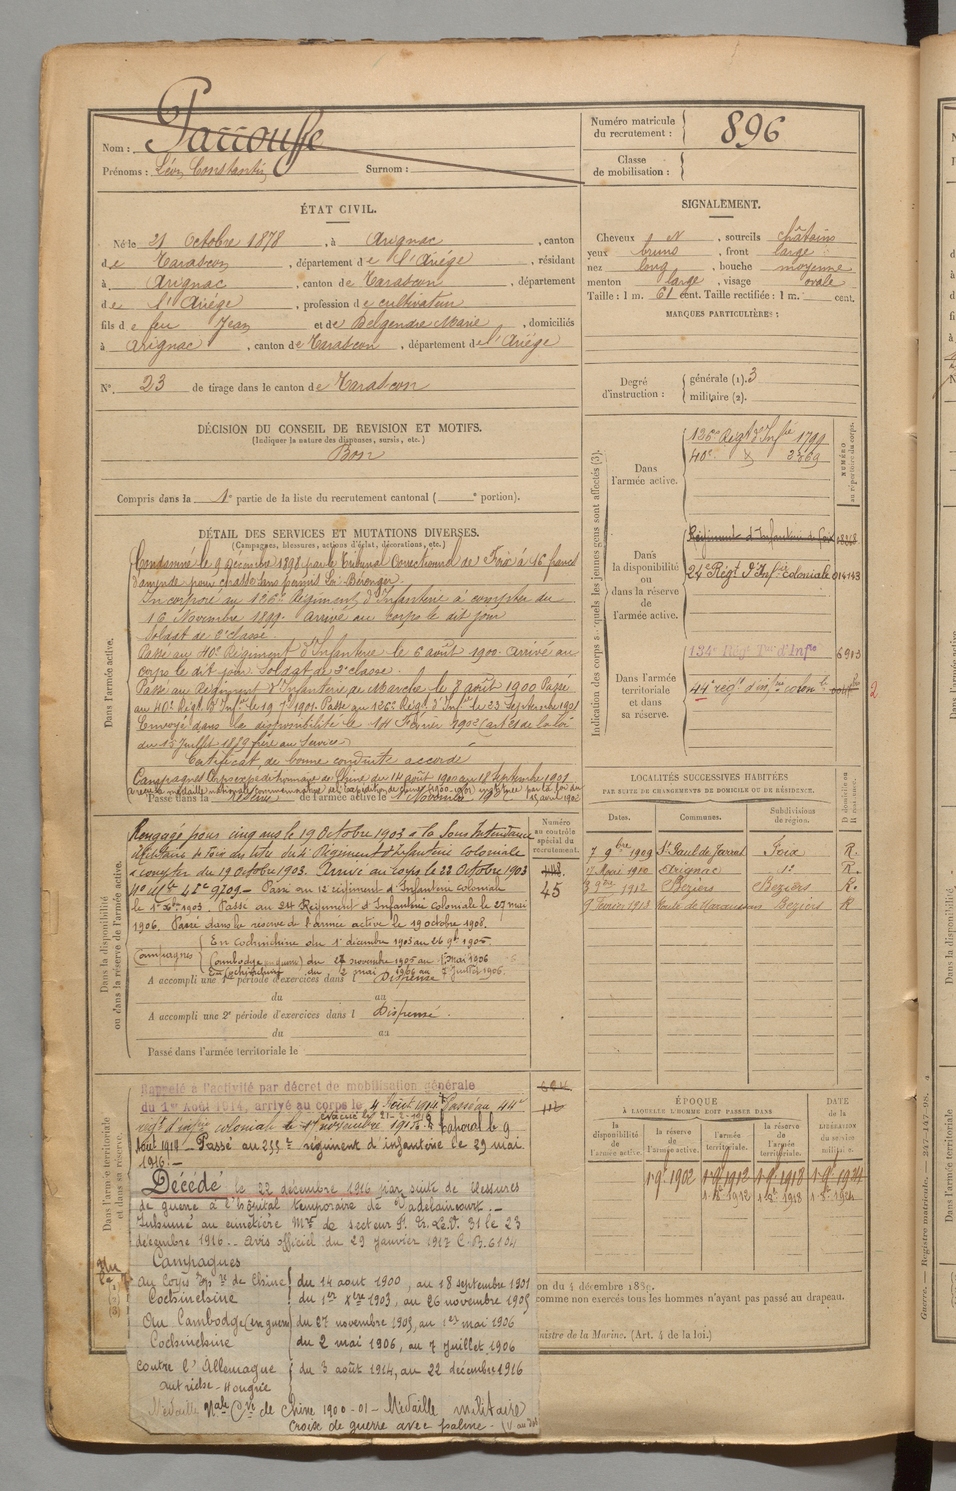 Nom : Parrouffe
Prénoms : Léon Constantin Surnom :
Numéro matricule du recrutement : 896
Classe de mobilisation :
ÉTAT CIVIL.
Né le 21 Octobre 1878, à Arignac, canton
de Tarascon, département de l'Ariége, résidant
à Arignac, canton de Tarascon, département
de l'Ariége, profession de cultivateur
fils de feu Jean et de Belgendre Marie, domiciliés
à Arignac, canton de Tarascon, département de l'Ariége
N° 23 de tirage dans le canton de Tarascon
SIGNALEMENT.
Cheveux N, sourcils châtains
yeux bruns, front large
nez long, bouche moyenne
menton large, visage ovale
Taille : 1 m. 61 cent. Taille rectifiée : 1 m. cent.
MARQUES PARTICULIÈRES :
Degré d'instruction : générale (1). 3
militaire (2).
DÉCISION DU CONSEIL DE REVISION ET MOTIFS.
(Indiquer la nature des dispenses, sursis, etc.)
Bon
Compris dans la 1e partie de la liste du recrutement cantonal ( e portion).
DÉTAIL DES SERVICES ET MUTATIONS DIVERSES.
(Campagnes, blessures, actions d'éclat, décorations, etc.)
Dans l'armée active.
Condamné le 9 décembre 1898 par le Tribunal Correctionnel de Foix à 16 francs
d'amende pour chasse sans permis Loi Bérenger.
Incorporé au 126e Régiment d'Infanterie à compter du
16 Novembre 1899. Arrivé au corps le dit jour
Soldat de 2e classe.
Passé au 40e Régiment d'Infanterie le 6 août 1900. Arrivé au
corps le dit jour. Soldat de 2e classe.
Passé au Régiment d'Infanterie de Marche le 8 août 1900 Passé
au 40e Régt d'Inf. le 19 1901. Passé au 126e Régt d'Inf. le 23 Septembre 1901
Envoyé dans la disponibilité le 14 Février 1902 (art de la loi
du 15 Juillet 1889 frère au Service)
Certificat de bonne conduite accordé
Campagnes Corps expéditionnaire de Chine du 14 août 1900 au 18 Septembre 1901
a reçu la médaille commémorative de l'Expédition de Chine (1900-1901) instituée par la loi du 15 avril 1902
Passé dans la Réserve de l'armée active le 1er Novembre 1902
Dans la disponibilité ou dans la réserve de l'armée active.
Rengagé pour cinq ans le 19 Octobre 1903 à la Sous Intendance
Militaire de Foix au titre du 4e Régiment d'Infanterie coloniale
à compter du 19 Octobre 1903. Arrivé au corps le 22 Octobre 1903
Passé au 12 régiment d'Infanterie coloniale
le 1er Xbre 1903. Passé au 24 Régiment d'Infanterie Coloniale le 27 mai
1906. Passé dans la réserve de l'armée active le 19 octobre 1908.
Campagnes En Cochinchine du 1er décembre 1903 au 26 9bre 1905.
Cambodge en guerre) du 27 novembre 1905 au 1er mai 1906
En Cochinchine du 2 mai 1906 au 7 Juillet 1906.
A accompli une 1re période d'exercices dans l Dispensé
du au
A accompli une 2e période d'exercices dans l Dispensé.
du au
Passé dans l'armée territoriale le
Numéro au contrôle spécial du recrutement.
45
Indication des corps auxquels les jeunes gens sont affectés (3).
Dans l'armée active.
126e Régt d'Infie 1799
40e 3269
Dans la disponibilité ou dans la réserve de l'armée active.
Régiment d'Infanterie de Foix
24e Régt d'Infie coloniale 014143
Dans l'armée territoriale et dans sa réserve.
134e Régt Terr d'Infie 6913
44e régt d'infie colonle
2
NUMÉRO au répertoire du corps.
LOCALITÉS SUCCESSIVES HABITÉES
PAR SUITE DE CHANGEMENTS DE DOMICILE OU DE RÉSIDENCE.
Dates. Communes. Subdivisions de région. D domicile ou R résidence.
7 9bre 1909 St Paul de Jarrat Foix R.
7 Mai 1910 Arignac do R.
3 9bre 1912 Béziers Béziers R.
9 Février 1913 Route de Béziers R
ÉPOQUE
À LAQUELLE L'HOMME DOIT PASSER DANS
la disponibilité de l'armée active. la réserve de l'armée active. l'armée territoriale. la réserve de l'armée territoriale. DATE de la LIBÉRATION du service militaire.
1er 9bre 1902 1er 9bre 1912 1er 9bre 1918 1er 9bre 1924
1. 8bre 1912 1. 8bre 1918 1. 8bre 1924
Dans l'armée territoriale et dans sa réserve.
Rappelé à l'activité par décret de mobilisation générale
du 1er Août 1914, arrivé au corps le 4 Août 1914 Passé au 44e
régt d'infie coloniale le 17 novembre 1915. Caporal le 9
Passé au 255e régiment d'infanterie le 29 mai
1916.-
Décédé le 22 décembre 1916 par suite de blessures
de guerre à l'hôpital temporaire de Vadelaincourt.-
Inhumé au cimetière de secteur 31 le 23
décembre 1916.- Avis officiel du 29 janvier 1917 C.B. 6104
Campagnes
au Corps exp. re de Chine du 14 aout 1900, au 18 septembre 1901
Cochinchine du 1er Xbre 1903, au 26 novembre 1905
Au Cambodge (en guerre) du 27 novembre 1905, au 1er mai 1906
Cochinchine du 2 mai 1906, au 7 Juillet 1906
contre l'Allemagne du 3 août 1914, au 22 décembre 1916
autriche-Hongrie
Médaille Nale Cve de Chine 1900-01 - Médaille militaire
Croix de guerre avec palme.
on du 4 décembre 1889.
comme non exercés tous les hommes n'ayant pas passé au drapeau.
nistre de la Marine. (Art. 4 de la loi.)
Guerre. — Registre matricule. — 247-147-98.